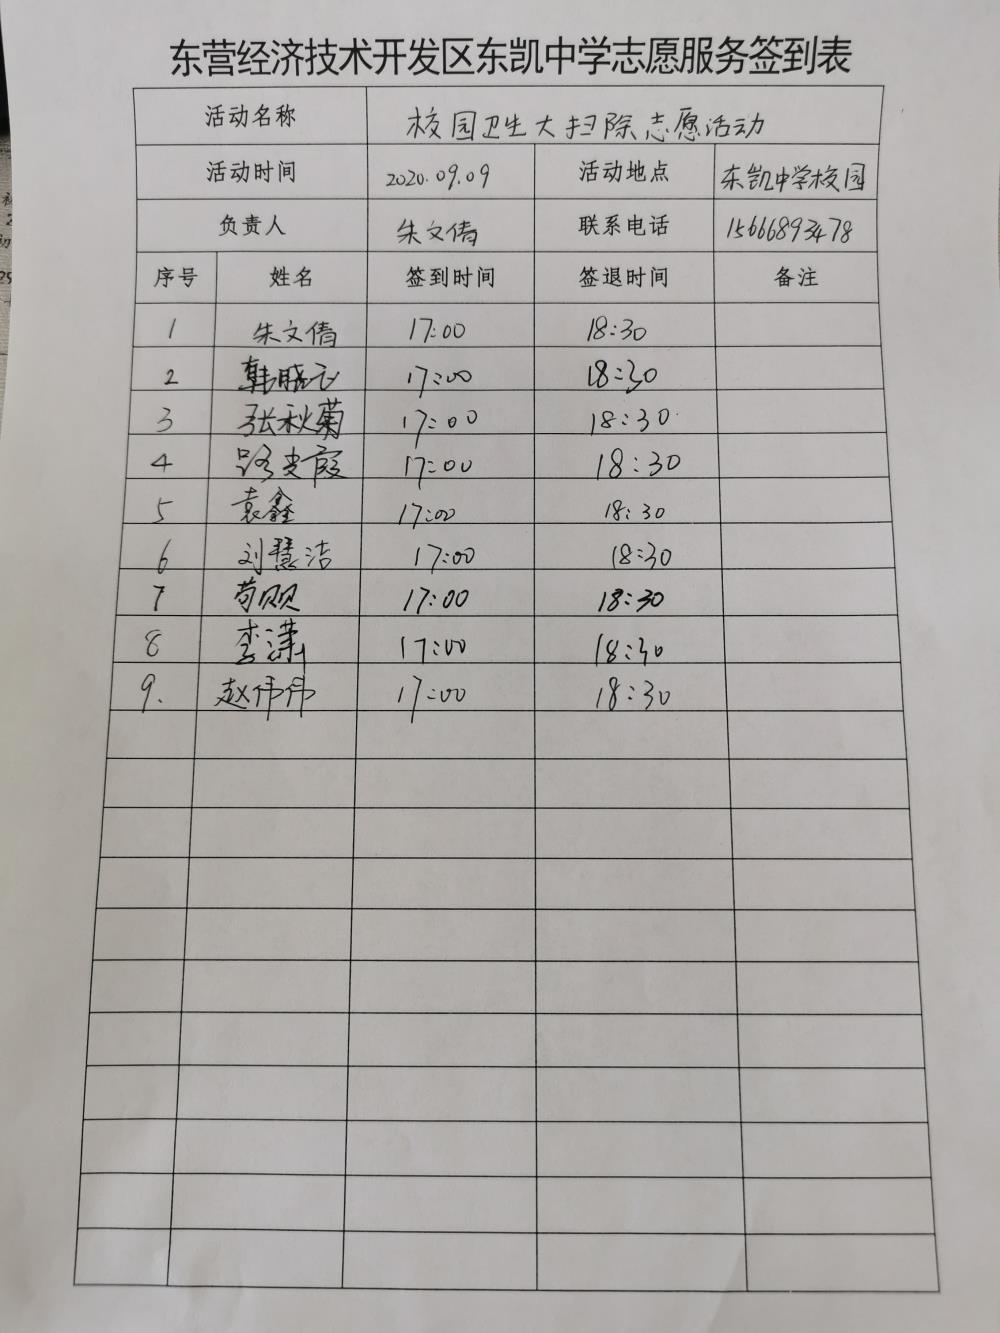 东营经济技术开发区东凯中学志愿服务签到表
活动名称 校园卫生大扫除志愿活动
活动时间 2020.09.09 活动地点 东凯中学校园
负责人 朱文倩 联系电话 15666893478
序号 姓名 签到时间 签退时间 备注
1 朱文倩 17:00 18:30
2 韩晓飞 17:00 18:30
3 张秋菊 17:00 18:30
4 路 霞 17:00 18:30
5 袁鑫 17:00 18:30
6 刘慧洁 17:00 18:30
7 苟贝贝 17:00 18:30
8 李潇 17:00 18:30
9. 赵伟伟 17:00 18:30